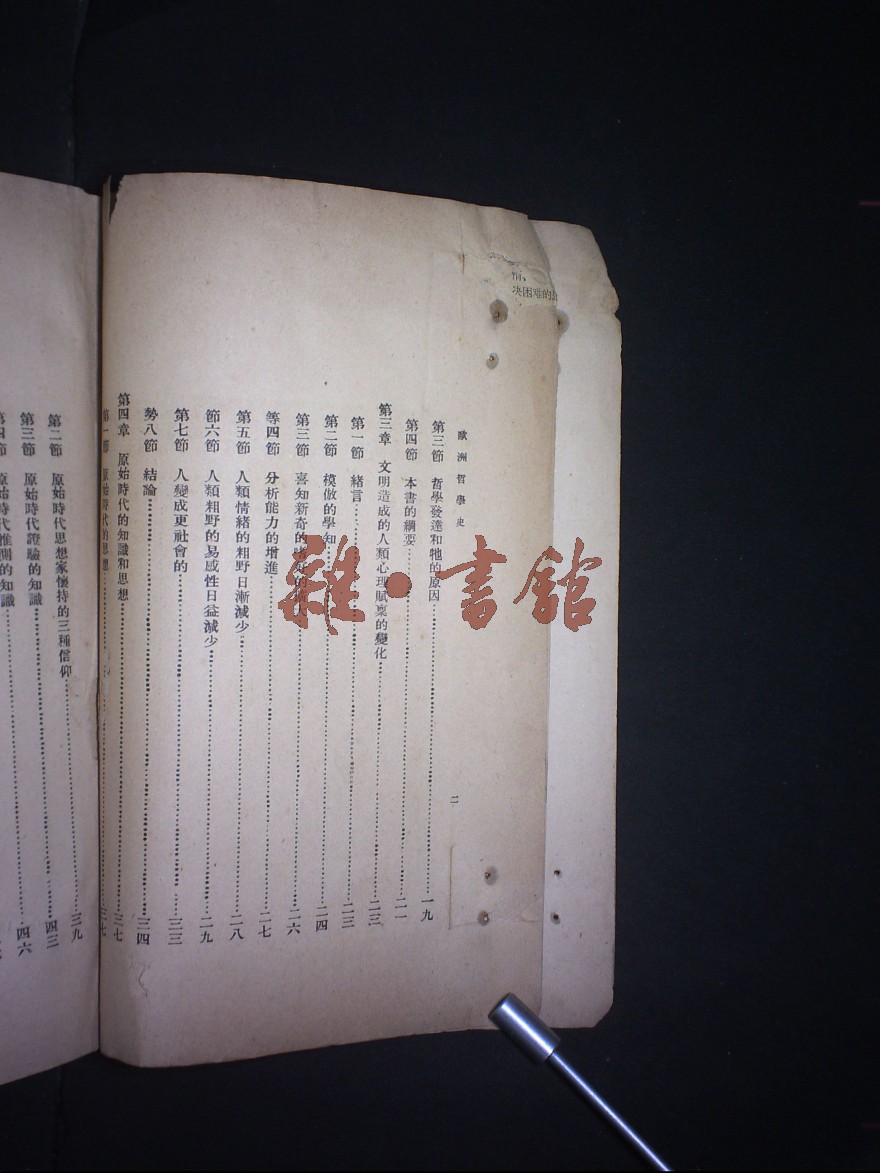 情，
决困难的
歐洲哲學史
二
第三節 哲學發達和牠的原因 一九
第四節 本書的綱要 二一
第三章 文明造成的人類心理賦稟的變化 二三
第一節 緒言 二三
第二節 模倣的學知 二四
第三節 喜知新奇的嗜好的 二六
等四節 分析能力的增進 二七
第五節 人類情緒的粗野日漸減少 二八
節六節 人類粗野的易感性日益減少 二九
第七節 人變成更社會的 三三
勢八節 結論 三四
第四章 原始時代的知識和思想 三七
第一節 原始時代的思想 三七
第二節 原始時代思想家懷持的三種信仰 三九
第三節 原始時代證驗的知識 四三
第四節 原始時代推測的知識 四六
雜·書館